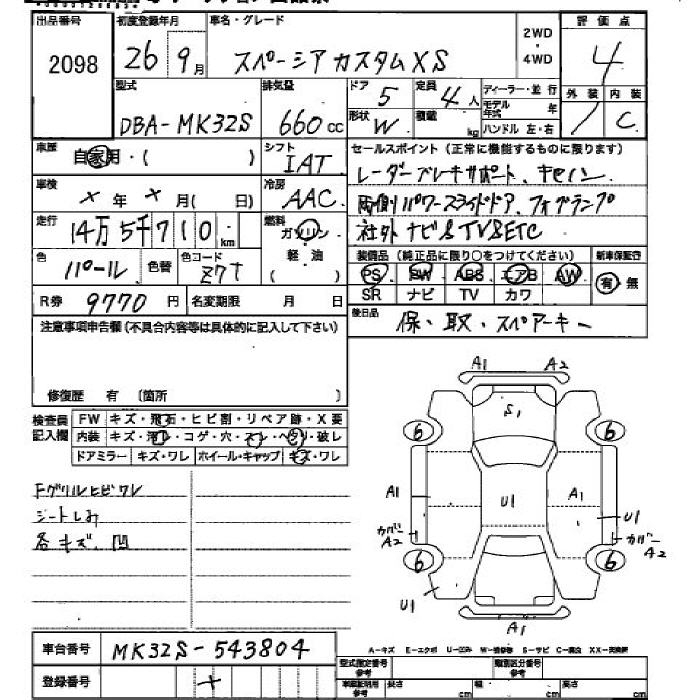 出品番号 初度登録年月 車名・グレード 2WD・4WD 評価点
2098 26年9月 スペーシアカスタムXS 4
型式 排気量 ドア 定員 ディーラー・並行 外装 内装
DBA-MK32S 660cc 5 4人 モデル年式 年 C
形状 W 積載 kg ハンドル 左・右
車歴 自家用・( ) シフト IAT セールスポイント(正常に機能するものに限ります)
レーダーブレーキサポート、キセノン
車検 ×年×月(日) 冷房 AAC
両側パワースライドドア、フォグランプ
走行 14万5千710km 燃料 ガソリン 軽・油 ( )
社外ナビ&TV&ETC
色 パール 色替 色コード Z7T
装備品(純正品に限り○をつけてください) 新車保証行
PS SW ABS エアB AW 有・無
SR ナビ TV カワ
R券 9770円 名変期限 月 日
後日品 保・取・スペアーキー
注意事項申告欄(不具合内容等は具体的に記入して下さい)
修復歴 有 〔箇所 〕
検査員記入欄
FW キズ・飛石・ヒビ割・リペア跡・X要
内装 キズ・汚レ・コゲ・穴・スレ・ヘタリ・破レ
ドアミラー キズ・ワレ ホイール・キャップ キズ・ワレ
Fグリルヒビワレ
シートしみ
各キズ、凹
A1 A2
S1
6 6
A1 U1 A1 U1
カバー A2 カバー A2
6 6
U1
A1
A-キズ E-エクボ U-凹ミ W-補修跡 S-サビ C-腐食 XX-交換歴
車台番号 MK32S-543804
登録番号
型式指定番号 参考 類別区分番号 参考
参考 長さ cm 幅 cm 高さ cm